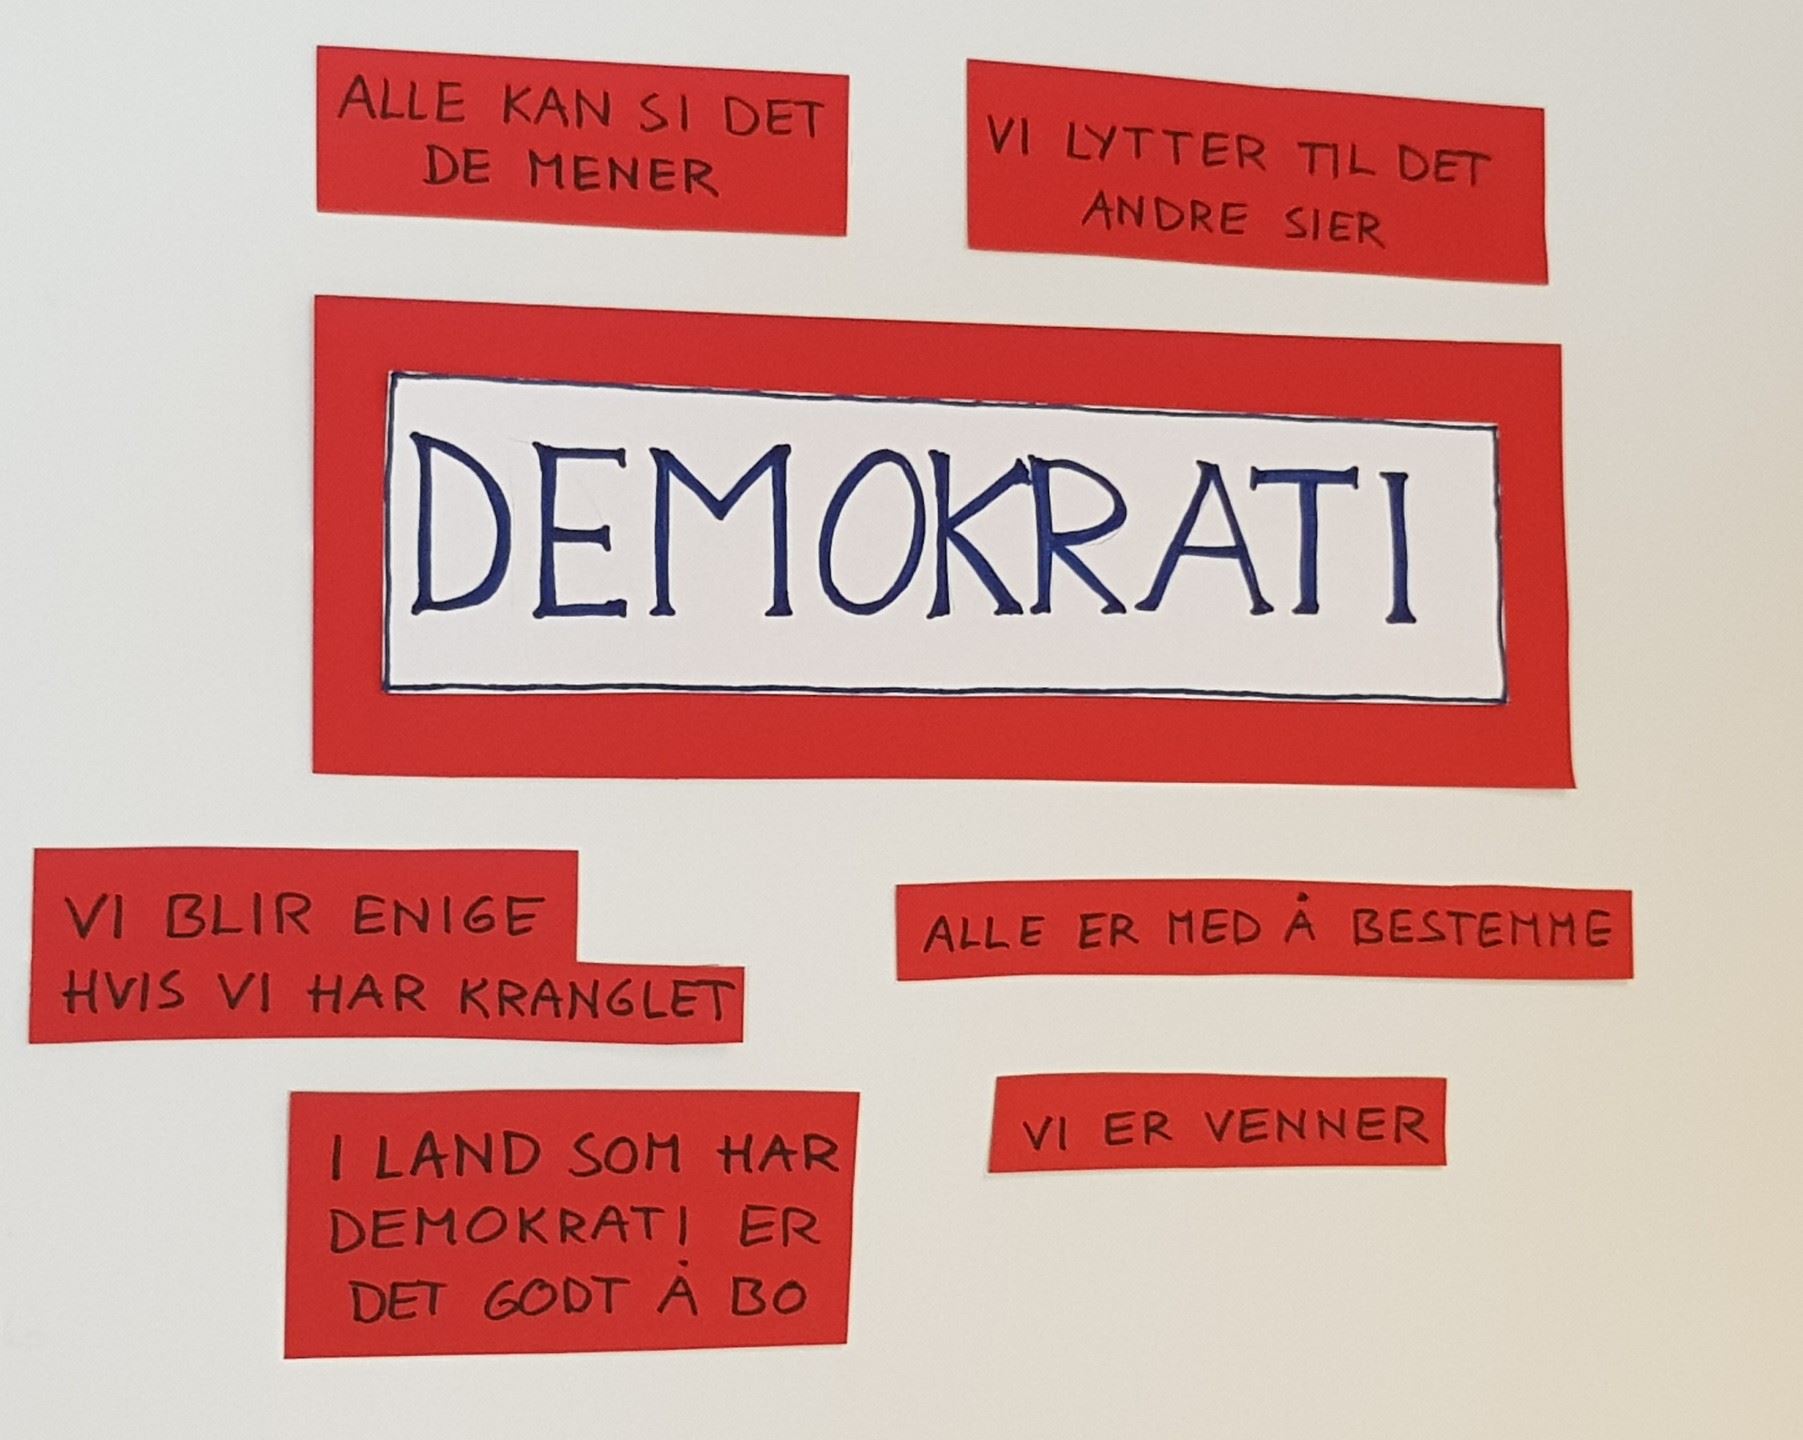 ALLE KAN SI DET
DE MENER
VI LYTTER TIL DET
ANDRE SIER
DEMOKRATI
VI BLIR ENIGE
HVIS VI HAR KRANGLET
ALLE ER MED Å BESTEMME
I LAND SOM HAR
DEMOKRATI ER
DET GODT Å BO
VI ER VENNER